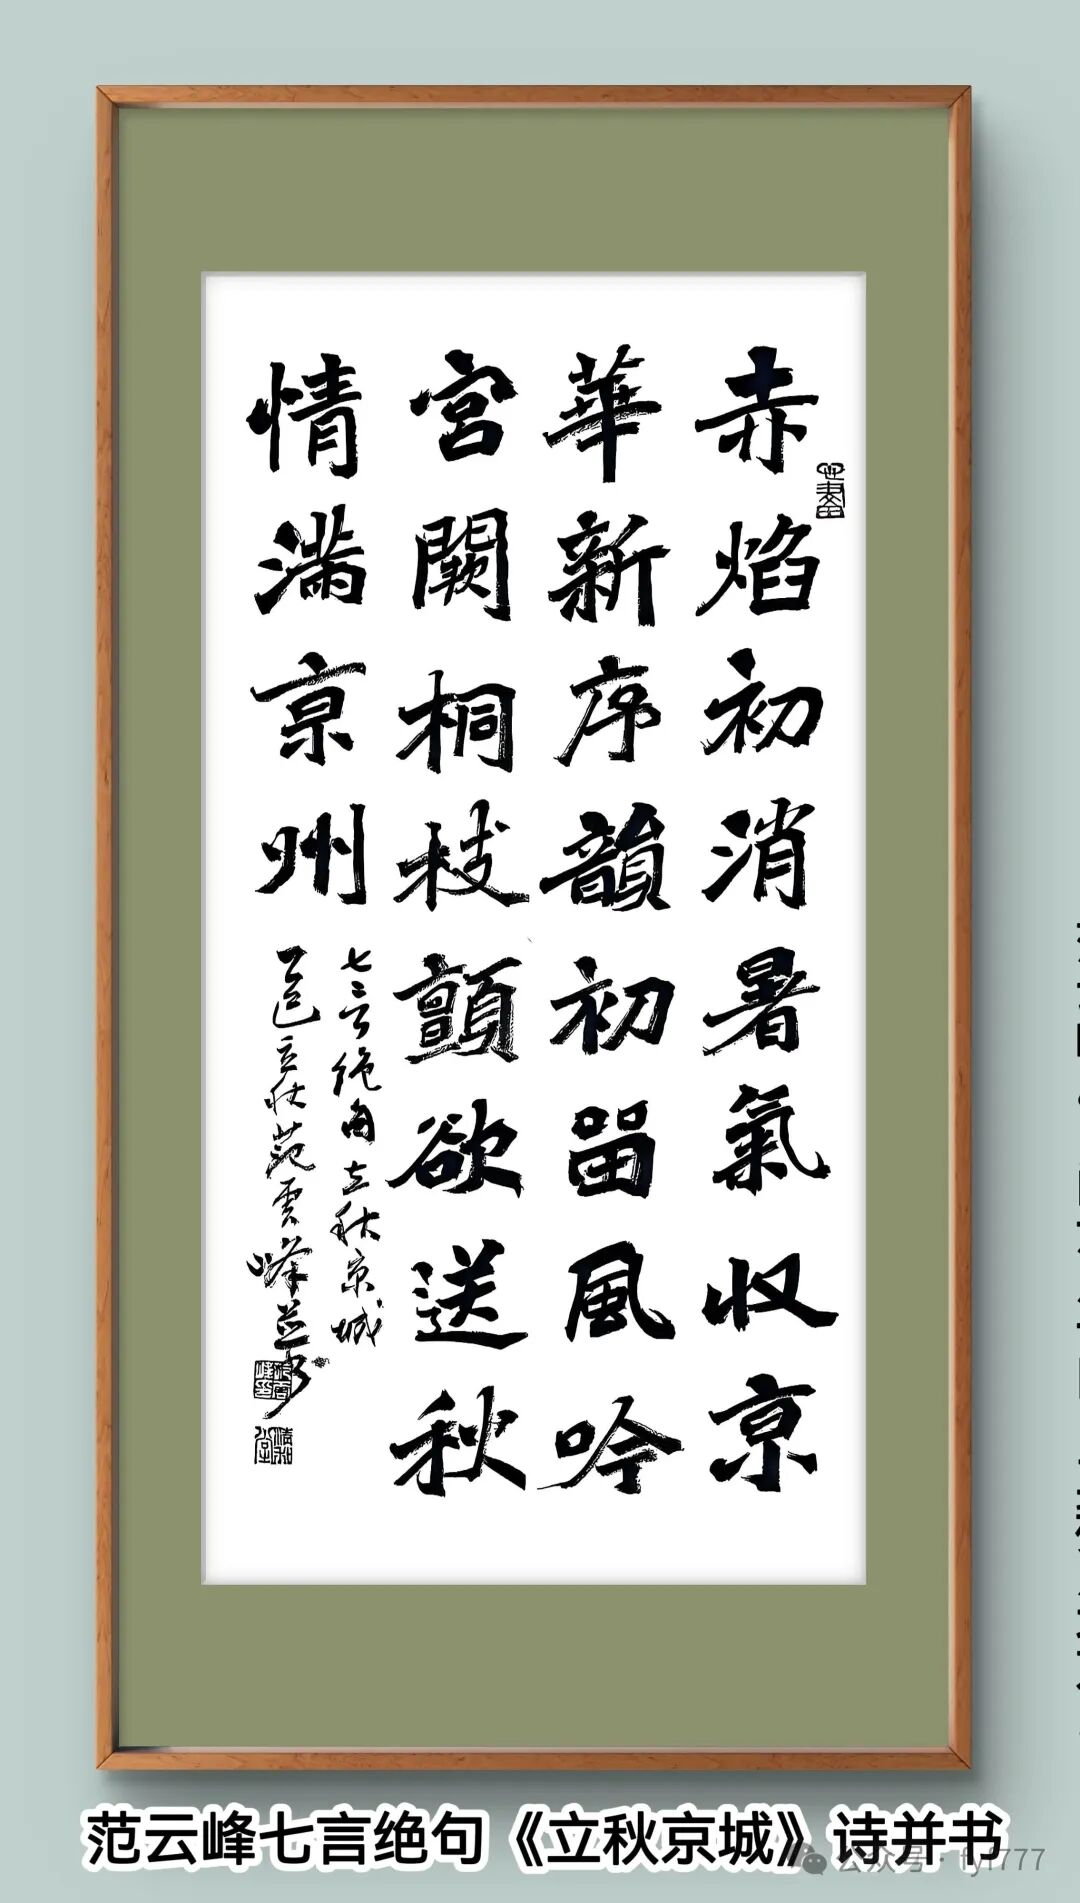 赤焰初消暑氣収京
華新序韻初畱風吟
宮闕桐枝顫欲送秋
情滿京州
七言绝句立秋京城
乙巳立秋范雲峰并书
范云峰七言绝句《立秋京城》诗并书
公众号·fyf777